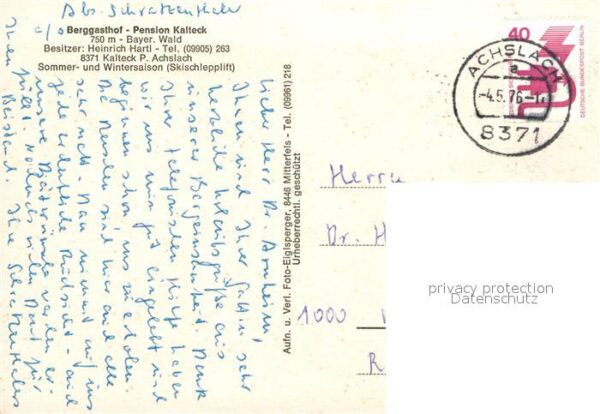 Abs. Schratzenthaler
c/o Berggasthof - Pension Kalteck
750 m - Bayer. Wald
Besitzer: Heinrich Hartl - Tel. (09905) 263
8371 Kalteck P. Achslach
Sommer- und Wintersaison (Skischlepplift)
Lieber Herr Dr. Arnheim,
Ihnen und Ihrer Gattin sehr
herzliche Urlaubsgrüße aus
unserer Bergeinsamkeit. Dank
Ihrer telefonischen Hilfe haben
wir uns nun gut eingelebt und
beginnen schon uns zu erholen.
Die Menschen sind hier auch alle
sehr nett. Man nimmt auf uns
jede erdenkliche Rücksicht - auch
unsere werden er-
füllt. Nochmals vielen Dank für
Ihren Beistand. Ihre Schratzenthalers
Aufn. u. Verl. Foto-Eiglsperger, 8446 Mitterfels - Tel. (09961) 218
Urheberrechtl. geschützt
40
DEUTSCHE BUNDESPOST BERLIN
ACHSLACH
a
-4.5.76-17
8371
Herrn
Dr. H
1000
R
privacy protection
Datenschutz